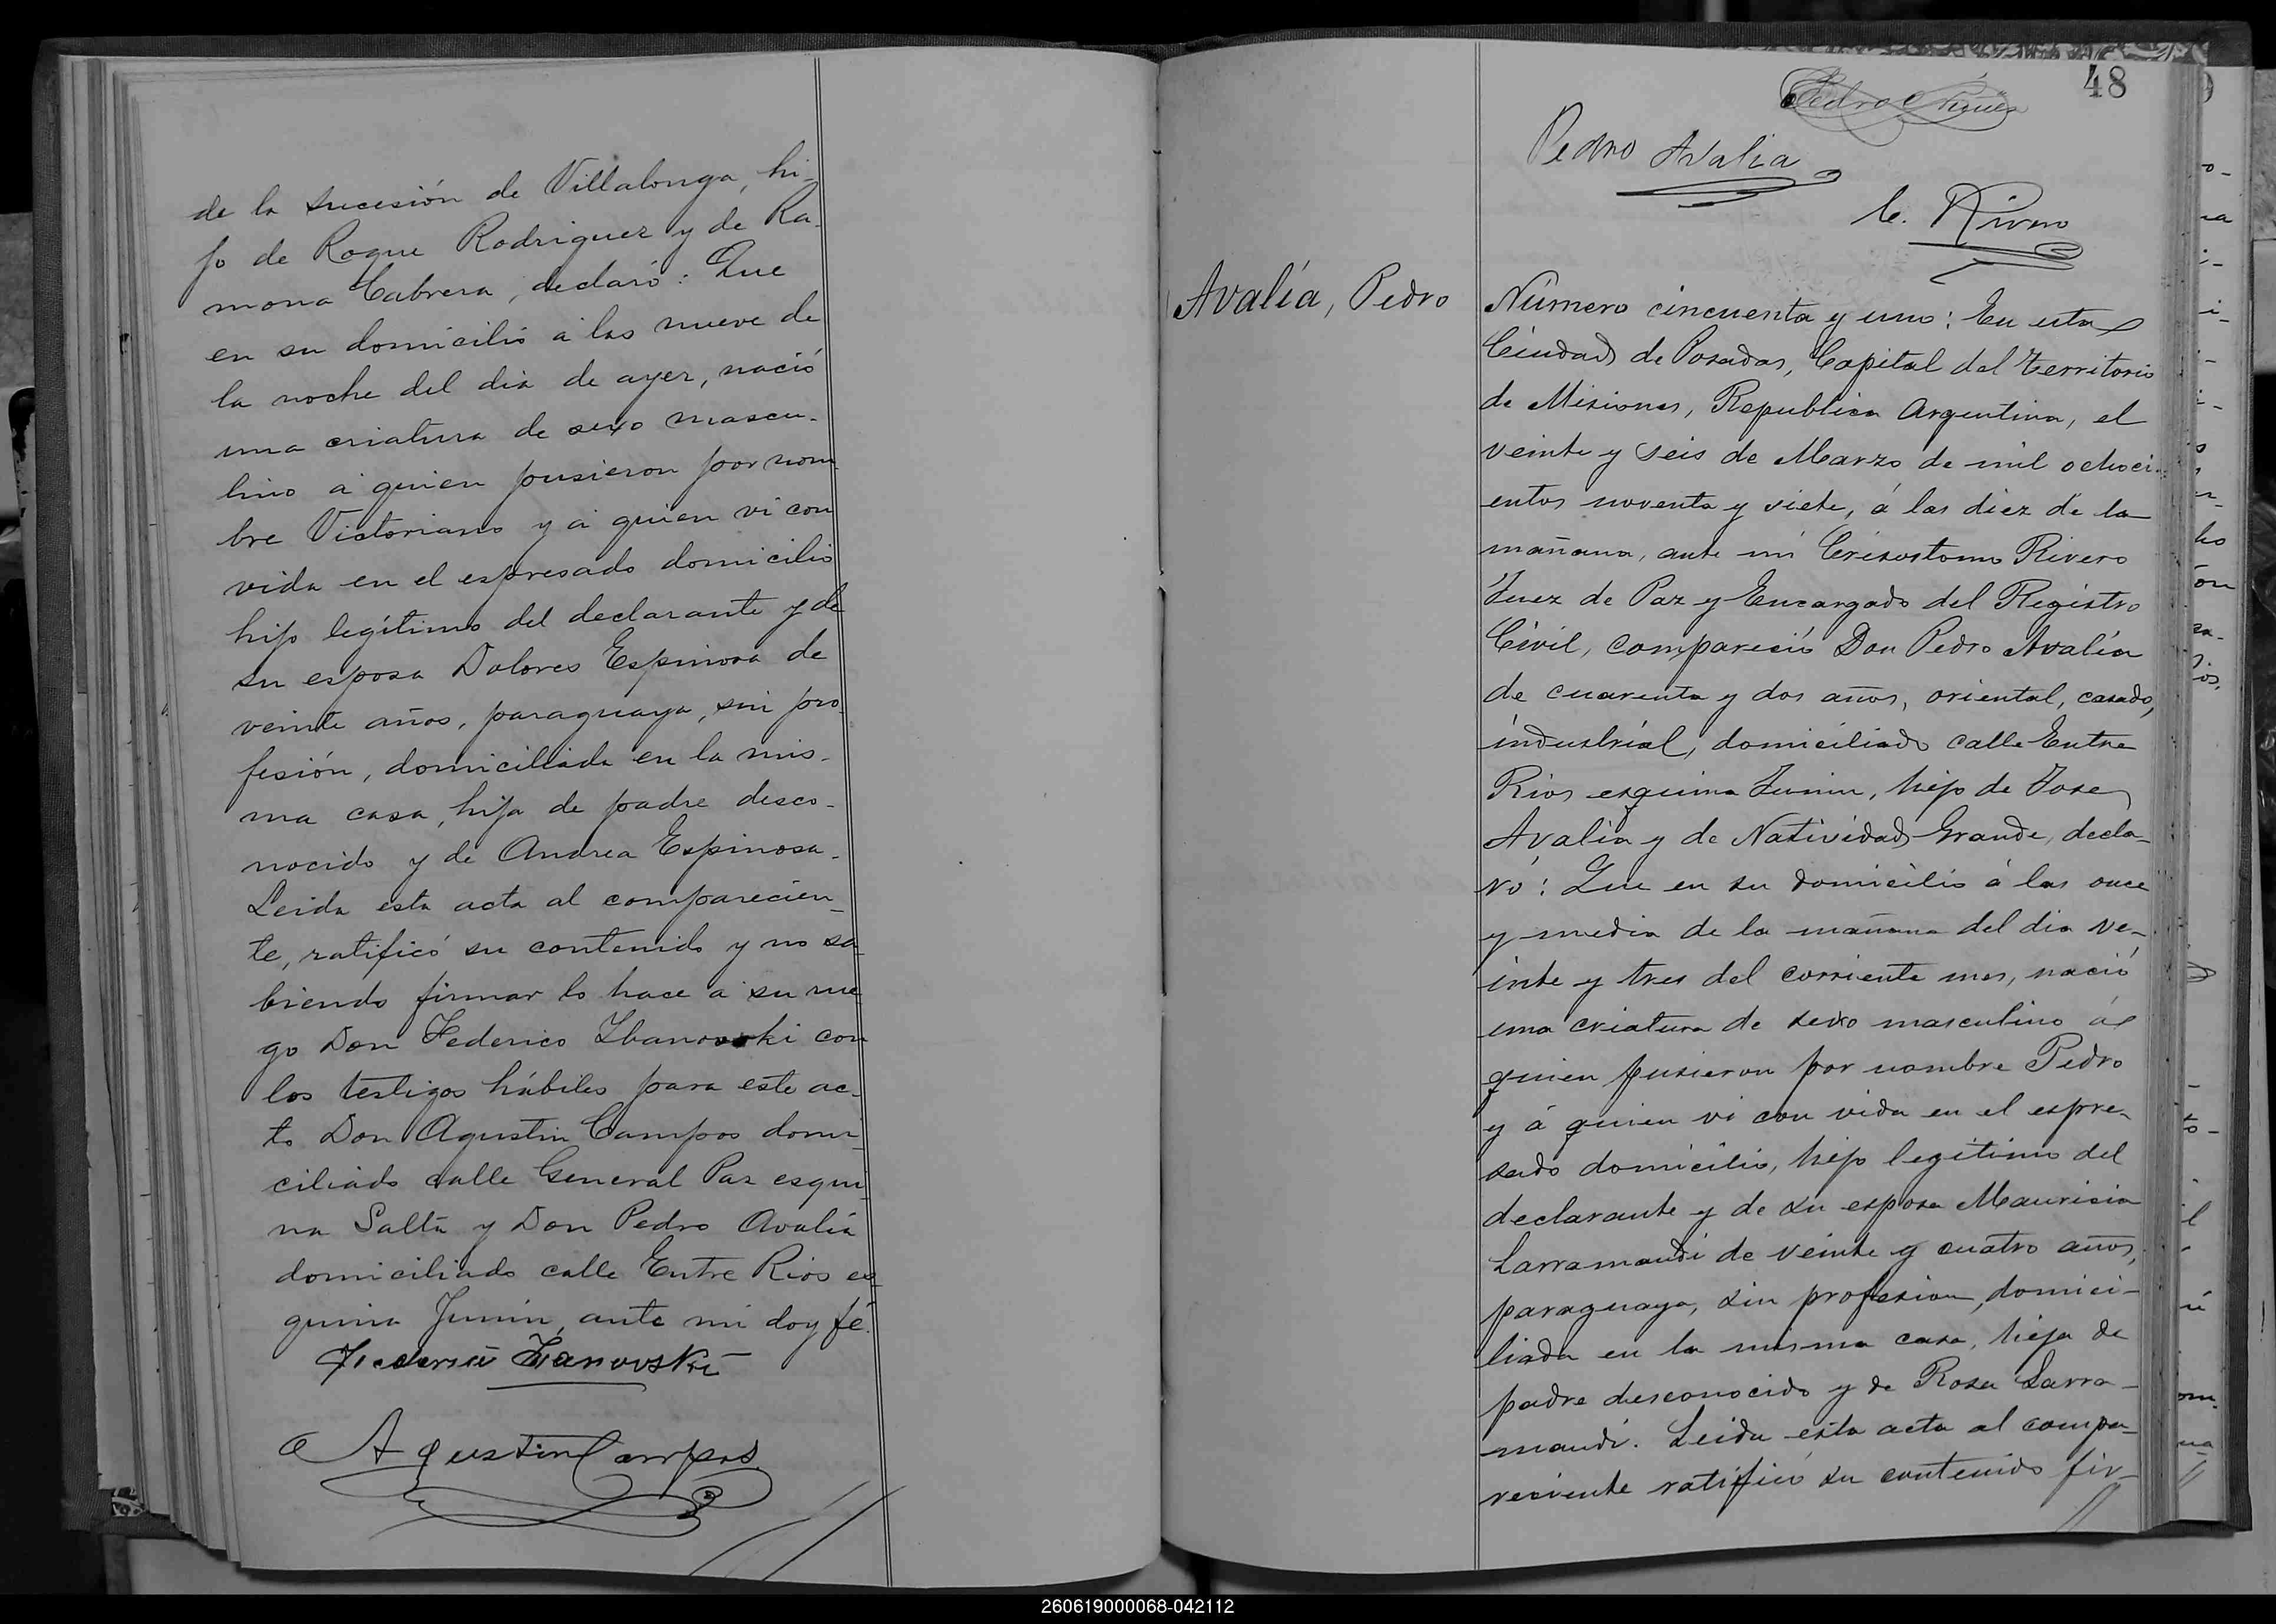 de la sucesión de Villalonga, hi-
jo de Roque Rodriguez y de Ra-
mona Cabrera, declaró: Que
en su domicilio á las nueve de
la noche del dia de ayer, nació
una criatura de sexo mascu-
lino á quien pusieron por nom
bre Victoriano y á quien vi con
vida en el espresado domicilio
hijo legítimo del declarante y de
su esposa Dolores Espinosa de
veinte años, paraguaya, sin pro-
fesión, domiciliada en la mis-
ma casa, hija de padre desco-
nocido y de Andrea Espinosa.
Leida esta acta al comparecien-
te, ratificó su contenido y no sa
biendo firmar lo hace á su rue
go Don Federico con
los testigos hábiles para este ac-
to Don Agustin Campos domi-
ciliado calle General Paz esqui-
na Salta y Don Pedro Avalía
domiciliado calle Entre Rios es
quina Junin, ante mi doy fé.
Agustin Campos
48
Pedro
Pedro Avalia
C. Rivero
Avalía, Pedro
Número cincuenta y uno: En esta
Ciudad de Posadas, Capital del Territorio
de Misiones, Republica Argentina, el
veinte y seis de Marzo de mil ochoci-
entos noventa y siete, á las diez de la
mañana, ante mi Crisostomo Rivero
Juez de Paz y Encargado del Registro
Civil, compareció Don Pedro Avalía
de cuarenta y dos años, oriental, casado,
industrial, domiciliado calle Entre
Rios esquina Junin, hijo de Jose
Avalía y de Natividad Grande, decla-
ró: Que en su domicilio á las once
y media de la mañana del dia ve-
inte y tres del corriente mes, nació
una criatura de sexo masculino á
quien pusieron por nombre Pedro
y á quien vi con vida en el espre-
sado domicilio, hijo legítimo del
declarante y de su esposa Maurisia
Larramandi de veinte y cuatro años,
paraguaya, sin profesion, domici-
liada en la misma casa, hija de
padre desconocido y de Rosa Larra-
mandi. Leida esta acta al compa-
reciente ratificó su contenido fir-
260619000068-042112